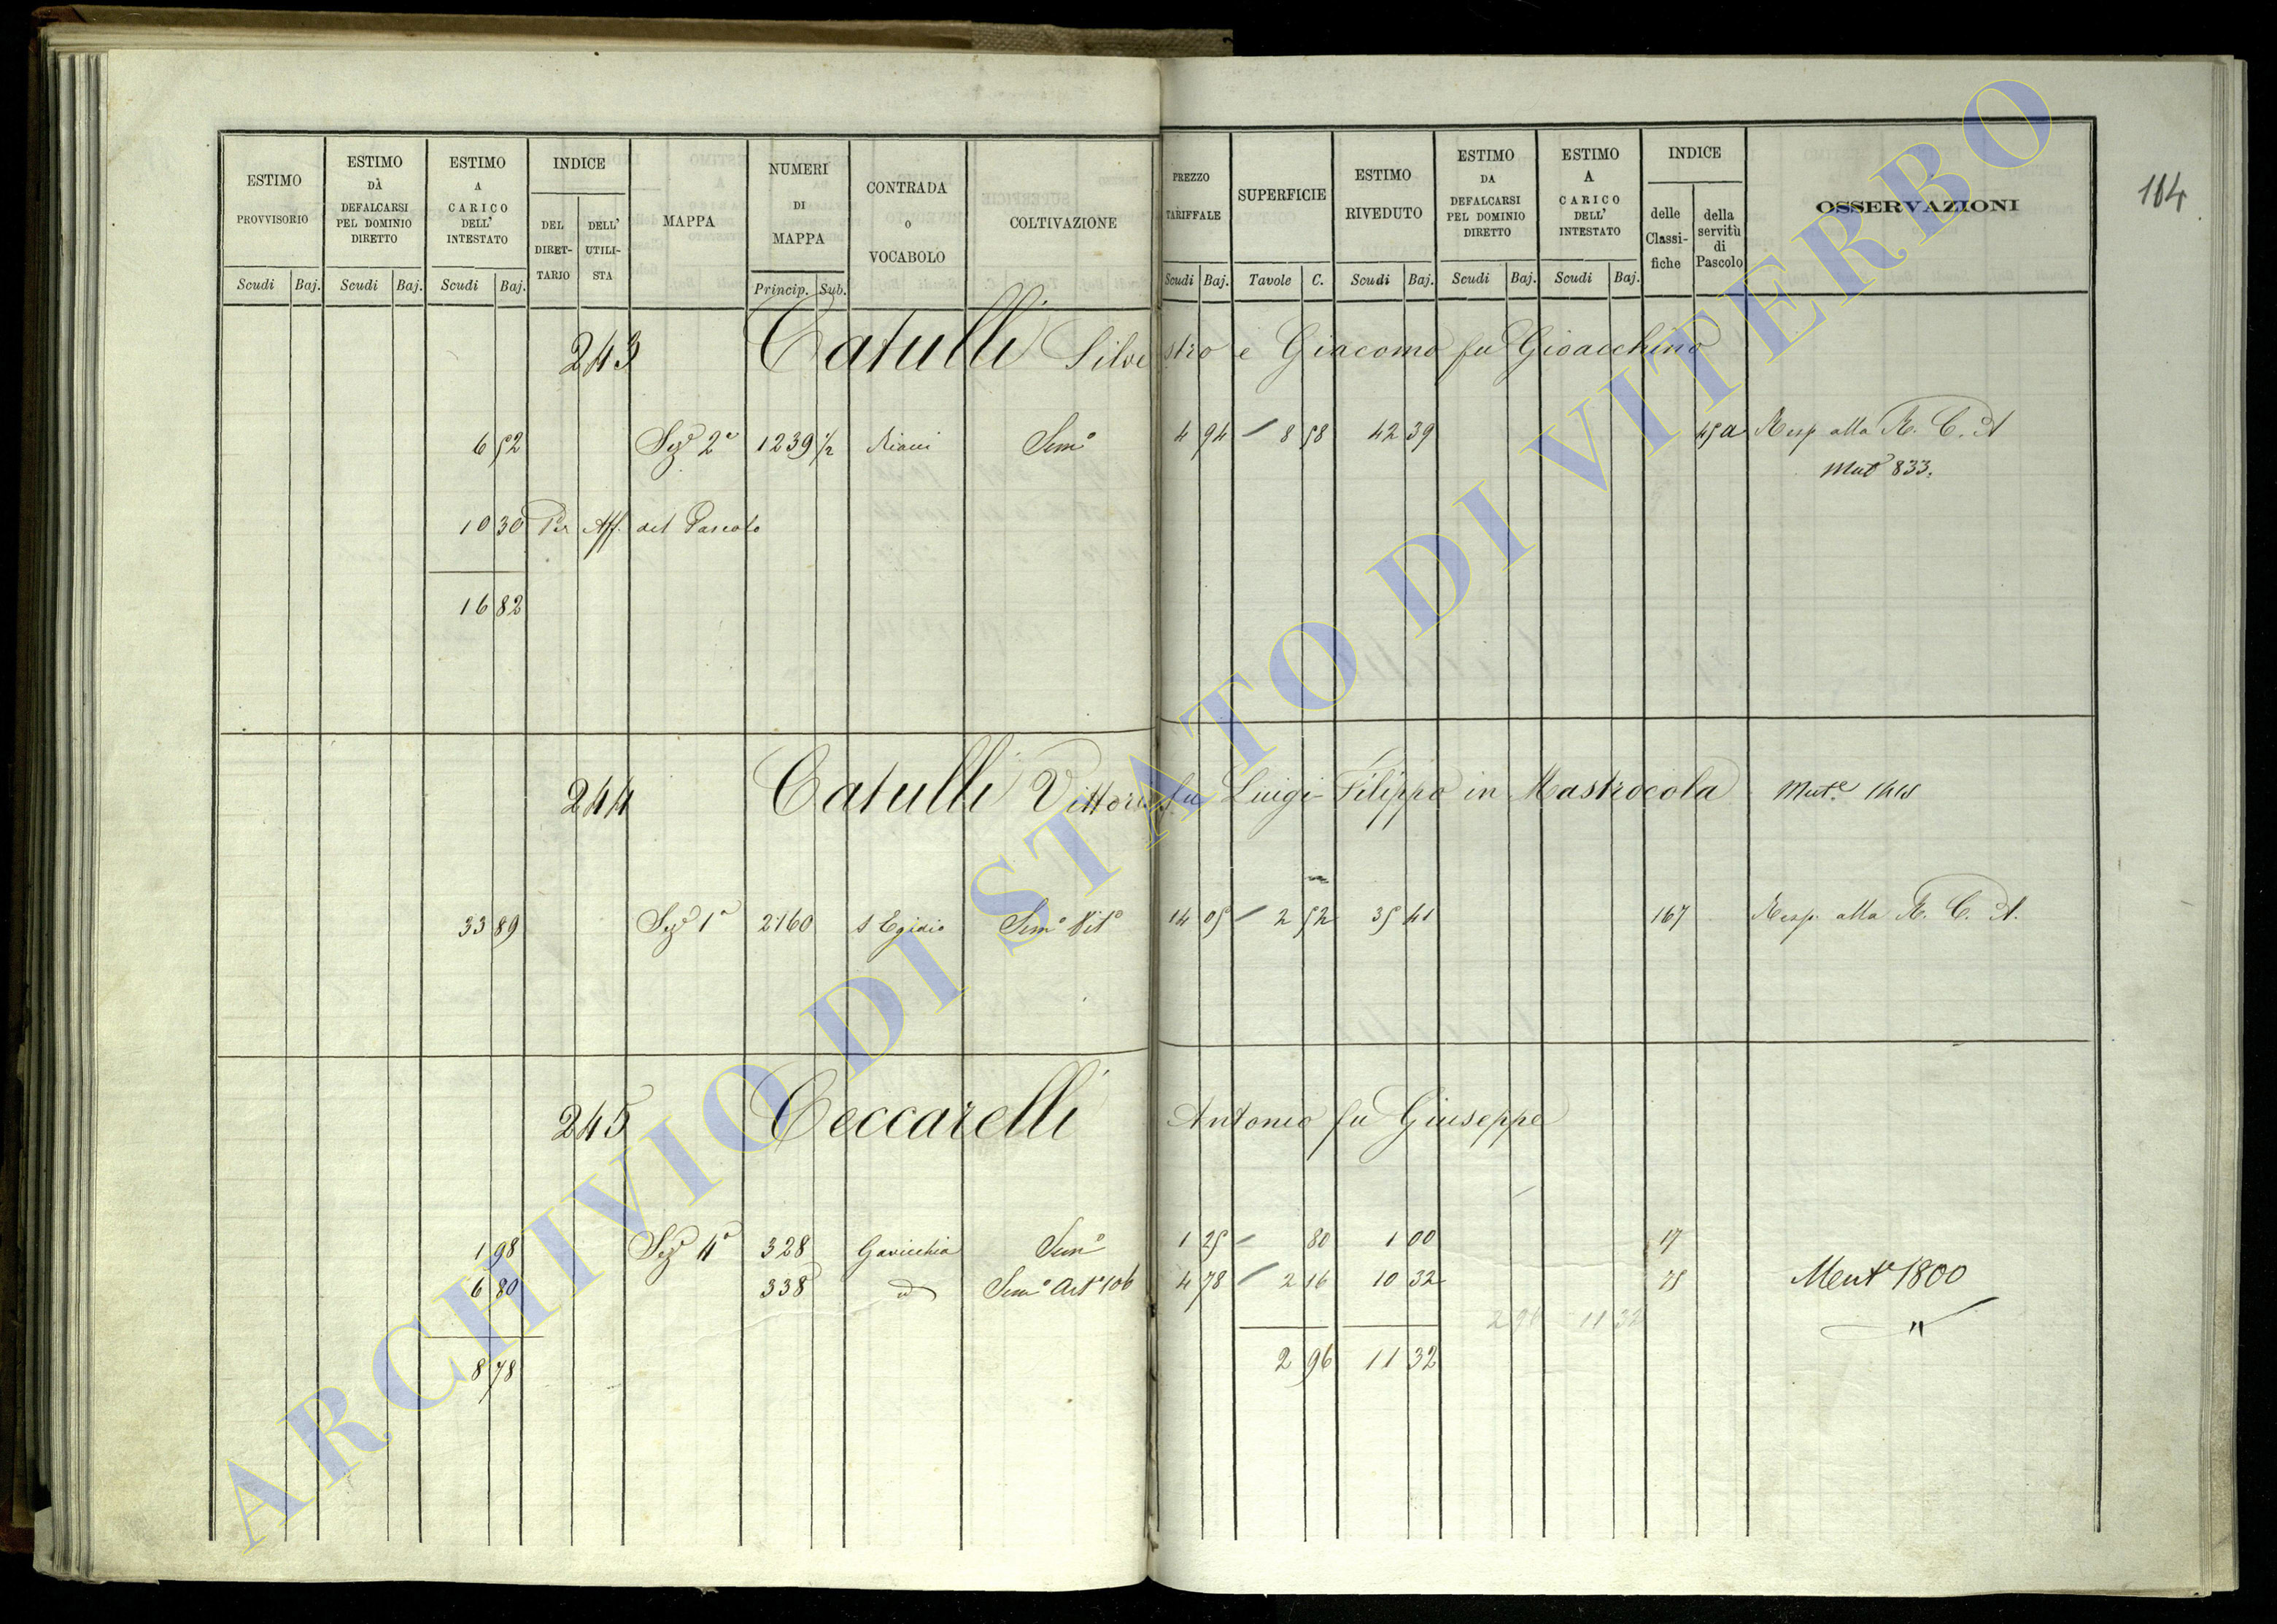 164
ESTIMO PROVVISORIO Scudi Baj.
ESTIMO DÀ DEFALCARSI PEL DOMINIO DIRETTO Scudi Baj.
ESTIMO A CARICO DELL' INTESTATO Scudi Baj.
INDICE DEL DIRET-TARIO DELL' UTILI-STA
MAPPA
NUMERI DI MAPPA Princip. Sub.
CONTRADA o VOCABOLO
COLTIVAZIONE
PREZZO TARIFFALE Scudi Baj.
SUPERFICIE Tavole C.
ESTIMO RIVEDUTO Scudi Baj.
ESTIMO DA DEFALCARSI PEL DOMINIO DIRETTO Scudi Baj.
ESTIMO A CARICO DELL' INTESTATO Scudi Baj.
INDICE delle Classi-fiche della servitù di Pascolo
OSSERVAZIONI
243 Catulli Silvestro e Giacomo fu Gioacchino
6 52 Sezᵉ 2ª 1239 1/2 Riacci Semº 4 94 8 58 42 39 45 a Resp alla R. C. A
Mutª 833.
10 30 Per Aff. del Pascolo
16 82
244 Catulli Vittoria fu Luigi Filippo in Mastrocola Mutᵉ
33 89 Sezᵉ 1ª 2160 S Egidio Semº Vitº 14 05 2 52 35 41 167 Resp. alla R. C. A.
245 Ceccarelli Antonio fu Giuseppe
1 98 Sezᵉ 4ª 328 Gavicchia Semº 1 25 80 1 00 17
6 80 338 d Semº Artº 106 4 78 2 16 10 32 75 Mentª 1800
2 96 11 32 "
8 78 2 96 11 32
ARCHIVIO DI STATO DI VITERBO